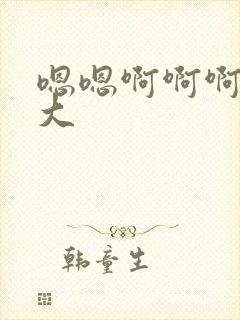 嗯嗯啊啊啊
大
韩童生